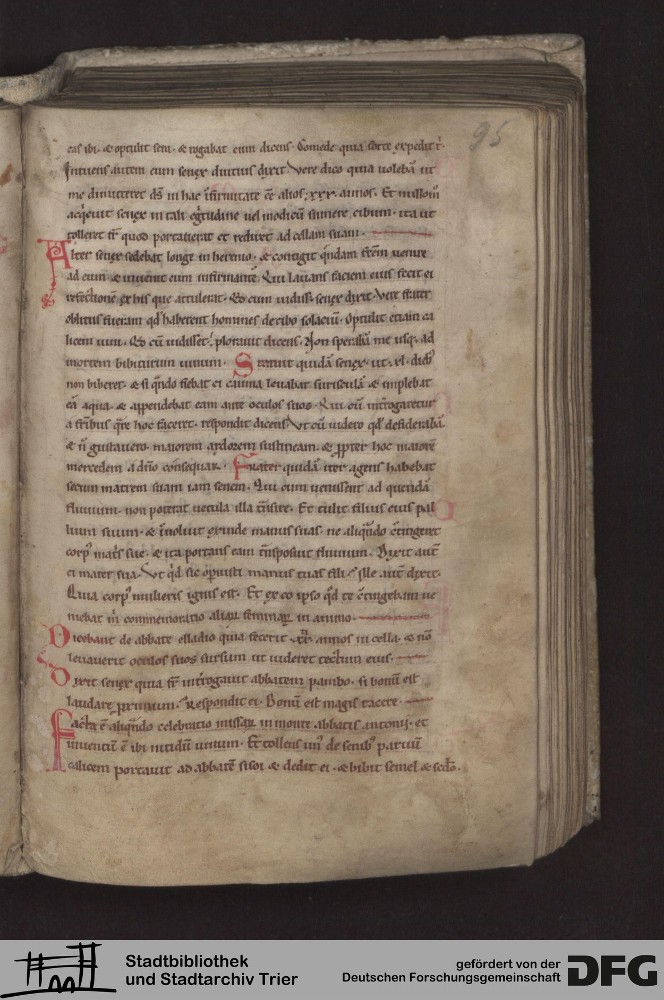 95
eas ibi · & optulit seni · & rogabat eum dicens · Comede quia forte expedit t̄ ·
Intuens autem eum senex diutius dixit · Vere dico quia uolebā ut
me dimitteret dr̄ in hac ifirmitate ēē alios · xxx · annos · Et
acqeuit senex in tali egritudine uel modicū sumere cibum · ita ut
tolleret fr̄ quod portauerat et rediret ad cellam suam ·
Alter senex sedebat longe in heremo · & contigit qndam frēm uenire
ad eum · & inuenit eum infirmantē · Qui lauans faciem eius fecit ei
refectionē ex his que attulerat · Qd cum uidiss& senex dixit · Vere frater
oblitus fueram qd haberent homines de cibo solacium · Optulit etiam ca
licem uini · Qd cū uidisset · plorauit dicens · Non sperabā me usq · ad
mortem bibiturum uinum · Statuit quidā senex · ut · xl · dieb9
non biberet · & si qndo fiebat ei cauma leuabat surisculā & implebat
eā aqua · & appendebat eam ante oculos suos · Qui cū introgaretur
a frib9 qre hoc faceret · respondit dicens · Vt cū uidero qd desiderabā
& n̄ gustauero · maiorem ardorem sustineam · & ppter hoc maiorē
mercedem a dn̄o consequar · Frater quidā iter agens habebat
secum matrem suam iam senem · Qui cum uenissent ad quendā
fluuium · non poterat uetula illa trnsire · Et tulit filius eius pal
lium suum · & inuoluit exinde manus suas · ne aliqndo ctingeret
corp9 matris sue · & ita portans eam trnsposuit fluuium · Dixit aut̄
ei mater sua · Vt qd sic opuisti manus tuas fili · Ille aut̄ dixit ·
Quia corp9 mulieris ignis est · Et ex eo ipso qd te ctingebam ue
niebat m̄ commemoratio aliar feminar in animo ·
Dicebant de abbate elladio quia fecerit · xx · annos in cella · & nō
leuauerit oculos suos sursum ut uideret tectum eius ·
Dixit senex quia fr̄ introgauit abbatem pambo · si bonū est
laudare primum · Respondit ei · Bonū est magis tacere ·
Facta ē aliqndo celebratio missar in monte abbatis antonij · et
inuentū ē ibi nitidū uinum · Et tollens un9 de senib9 paruū
calicem portauit ad abbatē sisoi & dedit ei · & bibit semel & scdo ·
Stadtbibliothek
und Stadtarchiv Trier
gefördert von der
Deutschen Forschungsgemeinschaft
DFG